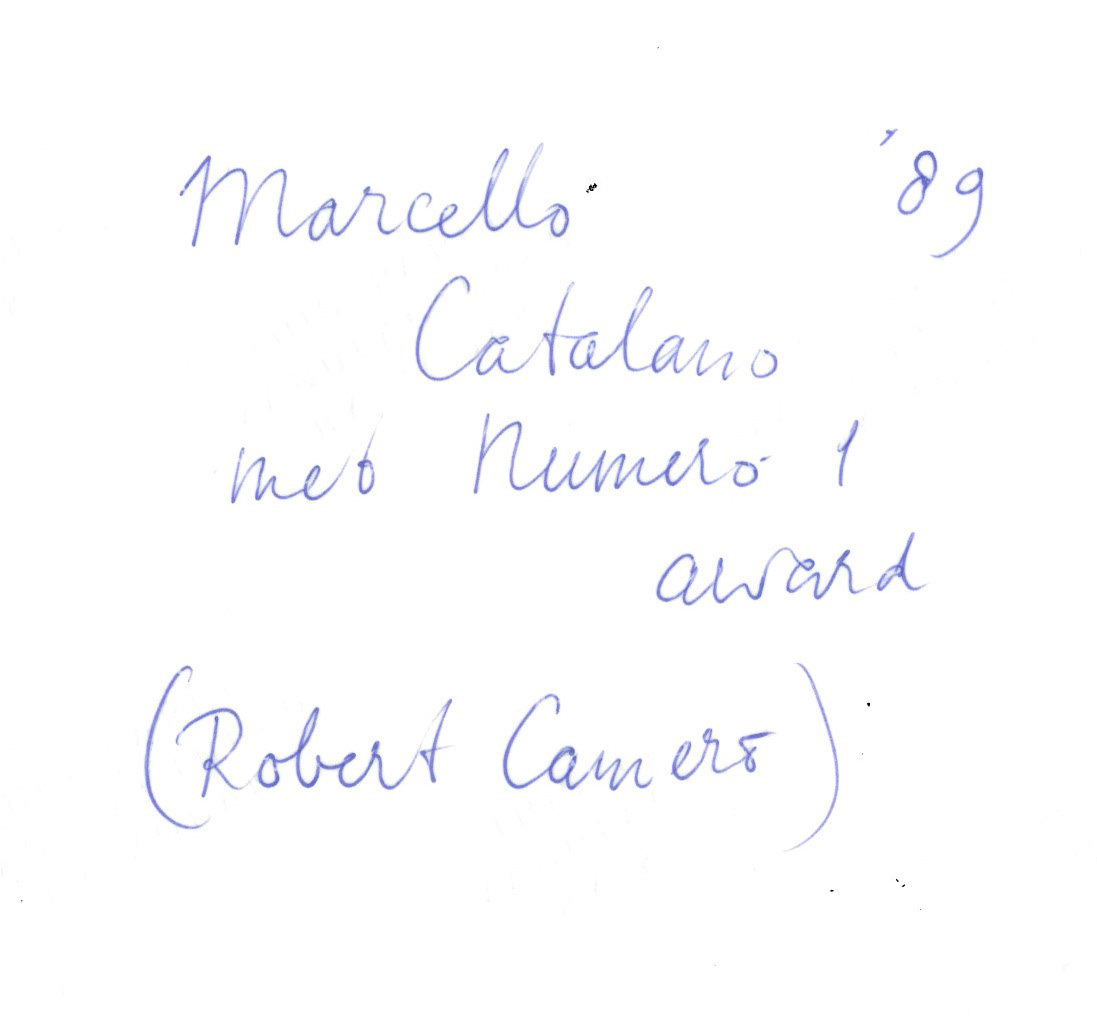 Marcello '89
Catalano
met Numero 1
award
(Robert Camero)